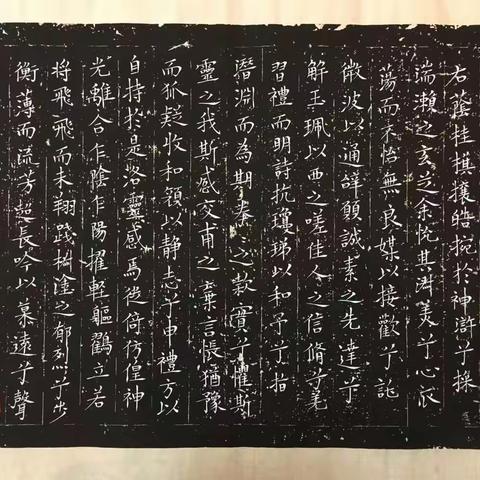 右蔭桂棋攘皓捥於神滸兮採
湍瀨之玄芝余悅其淑美兮心振
蕩而不怡無良媒以接歡兮託
微波以通辭願誠素之先達兮
解玉珮以要之嗟佳人之信脩兮羌
習禮而明詩抗瓊珶以和予兮指
潛淵而為期拳〻之款實兮懼斯
靈之我欺感交甫之棄言悵猶豫
而狐疑收和顏以静志兮申禮方以
自持於是洛靈感焉徙倚仿偟神
光離合乍陰乍陽擢輕軀鸖立若
將飛飛而未翔踐椒塗之郁烈兮步
衡薄而流芳超長吟以慕遠兮聲